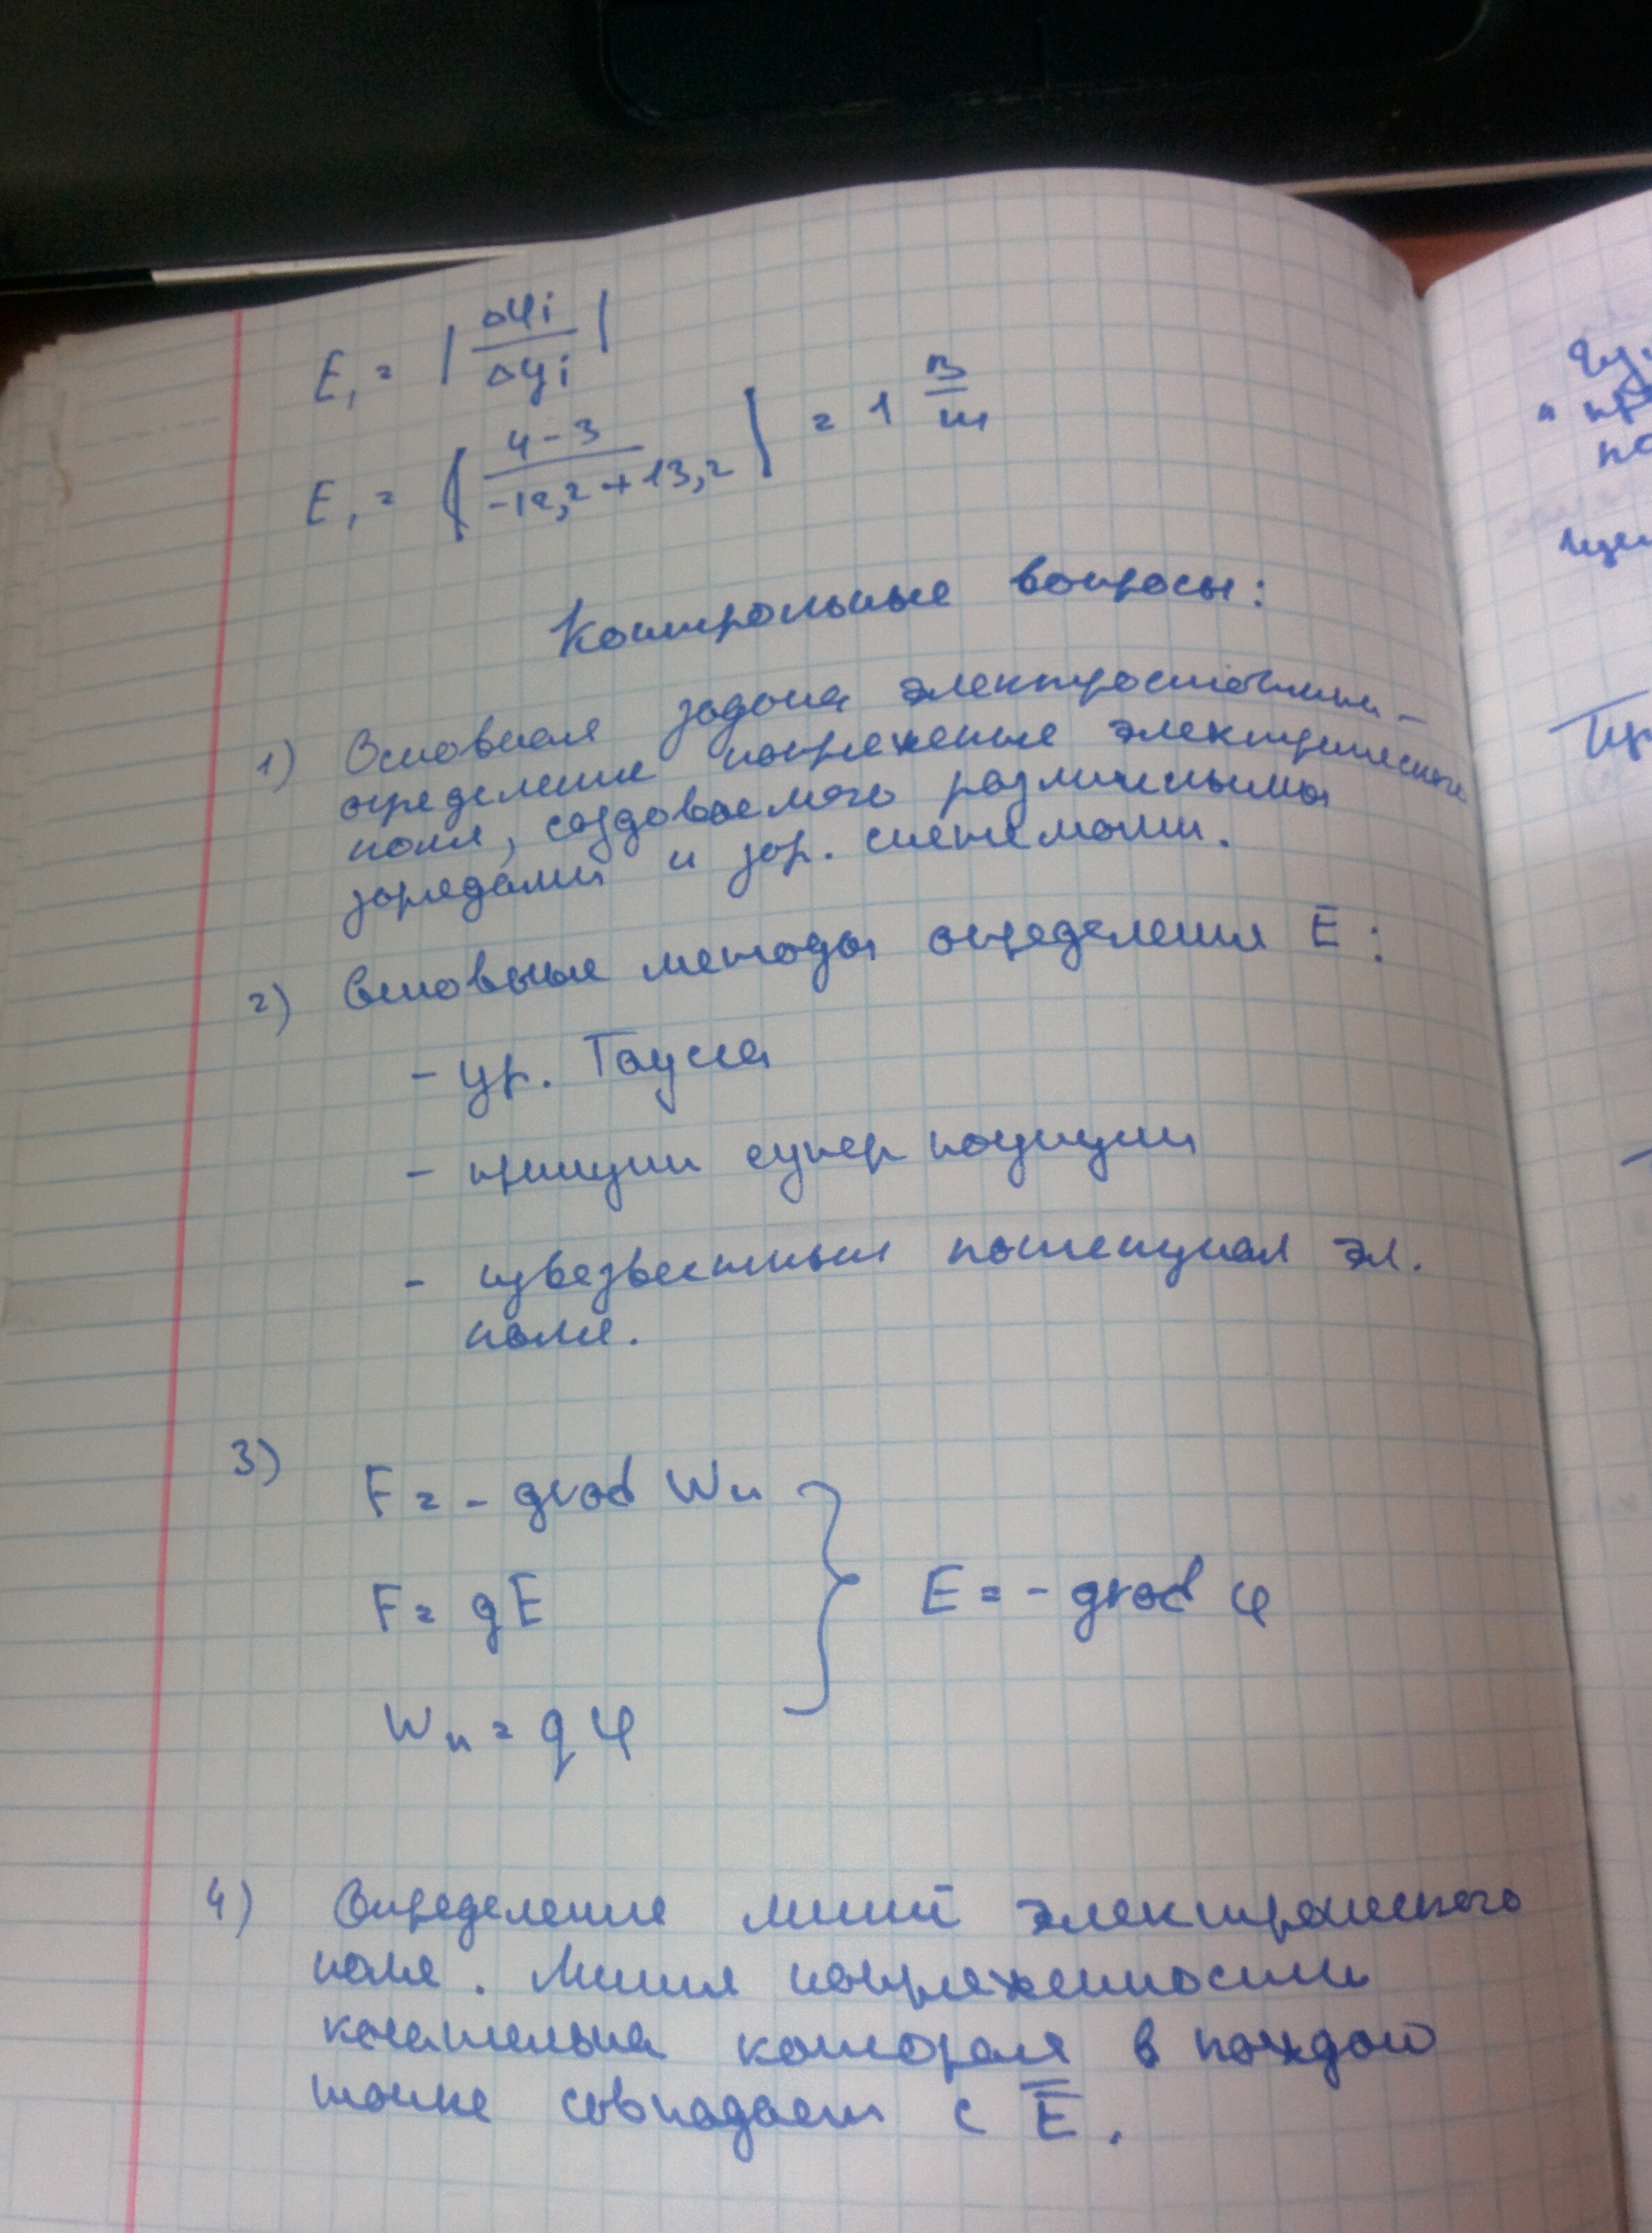 E₁ = |Δφi / Δyi|
E₁ = |4-3 / -12,2+13,2| = 1 В/м
Контрольные вопросы:
1) Основная задача электростатики -
определение напряжение электрического
поля, создаваемого различными
зарядами и зар. системами.
2) Основные методы определения E:
- ур. Гаусса
- принцип супер позиции
- потенциал эл.
поля.
3) F = - grad Wп
F = qE
E = - grad φ
Wп = qφ
4) Определение линий электрического
поля. Линия напряженности
касательна которая в каждой
точке совпадает с E̅.